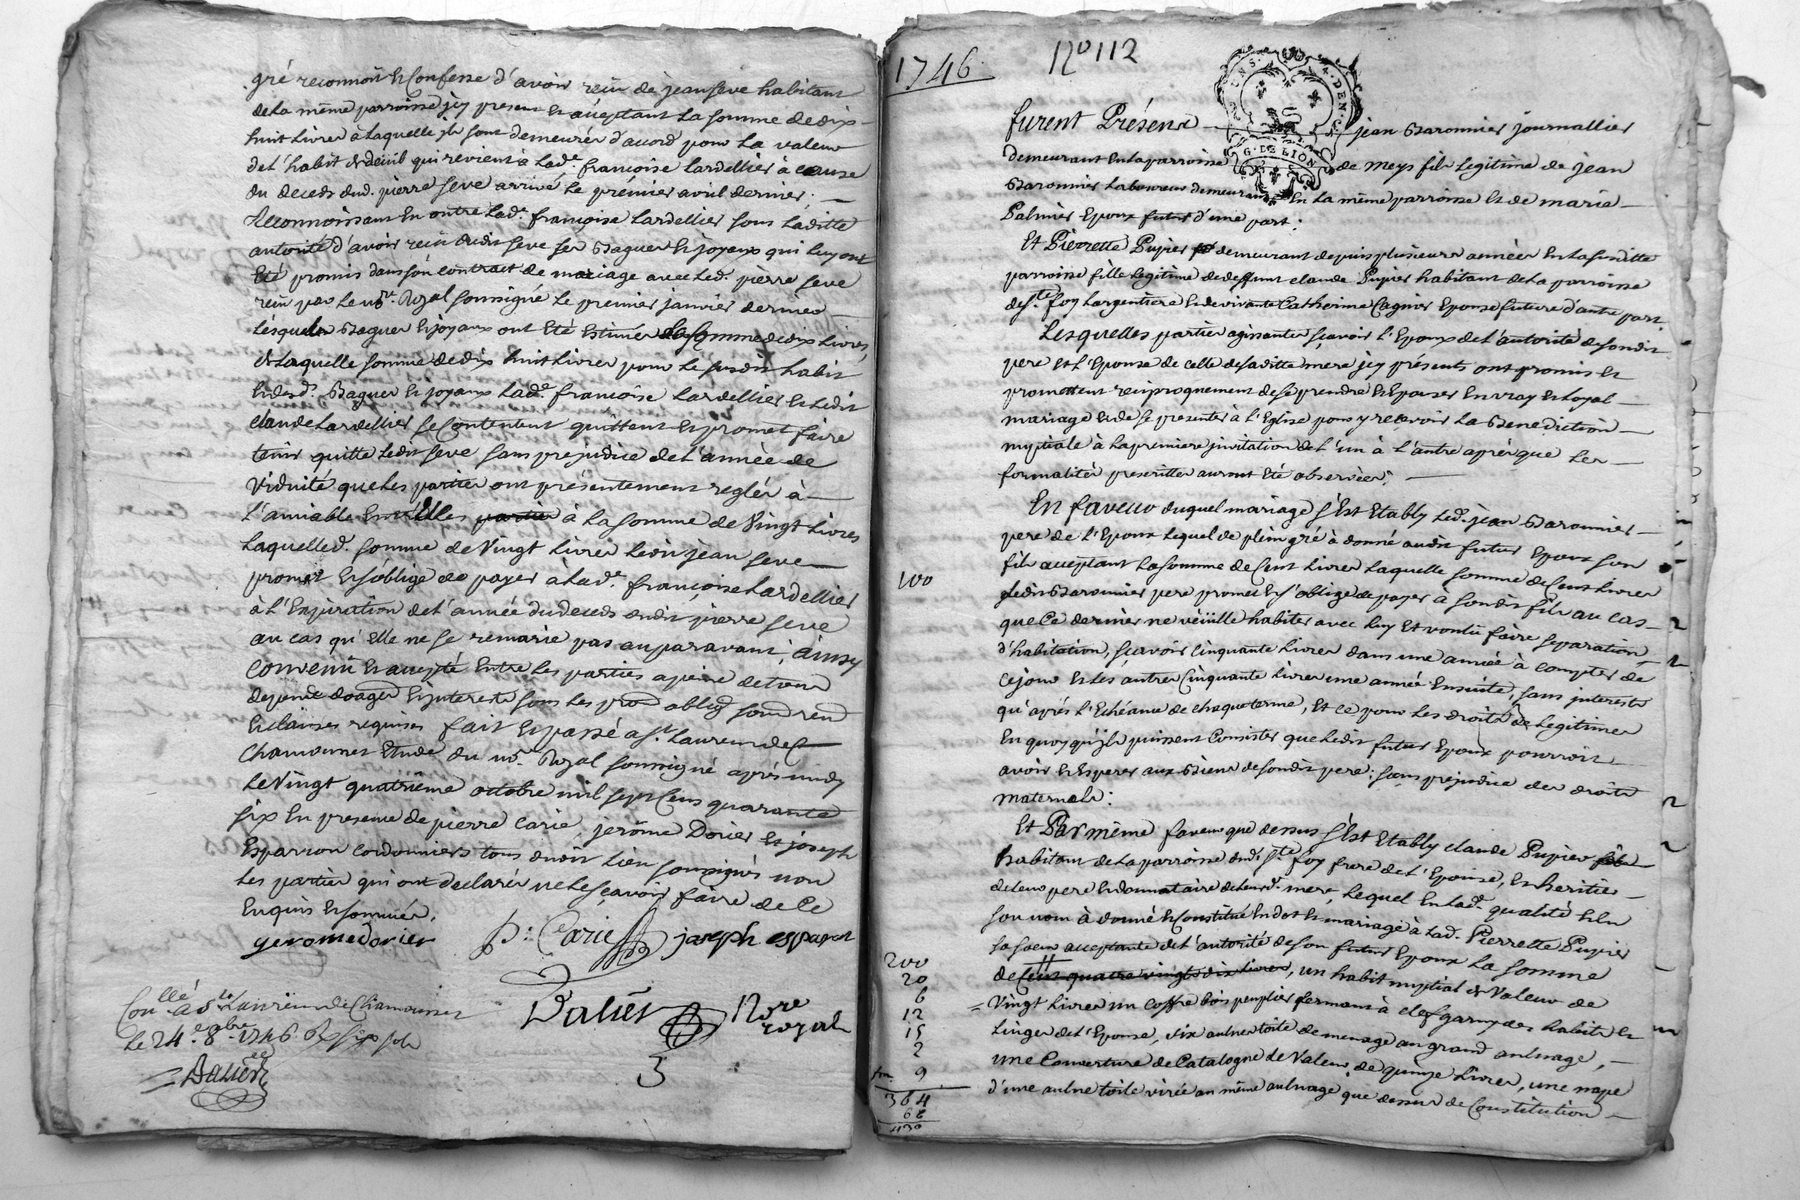 gré reconnoit et Confesse d'avoir reçu de jean seve habitant
de la même parroisse jcy present et acceptant La somme de dix
huit Livres à Laquelle jls sont demeurés d'acord pour La valeur
de L'habit de deüil qui revient à Lad.e françoise Lardellier à cause
du deceds dud. pierre seve arrivé le prémier avril dernier;
Reconnoissant En outre Lad.e françoise Lardellier sous Laditte
autorité d'avoir reçu dudit seve ses Bagues et joyaux qui Luy ont
Eté promis dans son contract de mariage avec Led. pierre seve
reçu par Le no.re Royal soussigné Le premier janvier dernier
Lesquels Bagues et joyaux ont Eté Estimés La somme de dix Livres,
de Laquelle somme de dix huit Livres pour Le susdit habit
et desd. Bagues et joyaux Lad.e françoise Lardellier et Ledit
claude Lardellier se Contentent quittent et promet faire
tenir quitte Ledit seve sans prejudice de L'année de
viduité que Les parties ont présentement reglés à
L'amiable Entr'Elles partie à La somme de Vingt Livres
Laquelled. somme de Vingt Livres Ledit jean seve
promet Et s'oblige de payer à Lad.e françoise Lardellier
à L'Expiration de L'année du deceds dudit pierre seve
au cas qu'Elle ne se remarie pas auparavant, ainsy
Convenu et accepté Entre Les parties a peine de tous
depens domages Et jnterests sous Les prom obligõ soum renõ
Et clauses requises fait Et passé a St. Laurent de
Chamousset Etude du no.re Royal soussigné après midy
Le Vingt quatrième octobre mil sept Cens quarante
six En presence de pierre Carie, jerôme Dorier et joseph
Esparron cordonniers tous dudit Lieu soussignés non
Les parties qui ont declarés ne Le sçavoir faire de Ce
Enquis Et sommés.
geromedorier
P: Carie
joseph esparon
Dalier Nore royal
Con.llé a St Laurent de Chamousset
Le 24.e 8bre 1746
Dalier
3
1746
No 112
G. DE LION
furent Présens jean Baronnier journallier
demeurant En La parroisse de Meys fils Legitime de jean
Baronnier Laboureur demeurant En La même parroisse et de marie
Palmier Epoux futur d'une part:
Et Pierrette Pupier demeurant depuis plusieurs années En La susditte
parroisse fille Legitime de deffunt claude Pupier habitant de La parroisse
de Ste foy Largentiere Et de vivante Catherine Cagnier Epouse future d'autre part.
Lesquelles parties agissantes sçavoir L'Epoux de L'autorité de sondit
pere et L'Epouse de celle de saditte mere jcy présents ont promis et
promettent reciproquement de se prendre et Epouser En vray et Loyal
mariage Et de se presenter à L'Eglise pour y recevoir La Benediction
nuptiale à La premiere jnvitation de L'un à L'autre après que Les
formalités prescrittes auront Eté observées;
En faveur duquel mariage s'Est Etably Led. jean Baronnier
pere de L'Epoux Lequel de plein gré à donné audit futur Epoux son
fils acceptant La somme de Cent Livres Laquelle somme de Cent Livres
100
Ledit Baronnier pere promet Et s'oblige de payer à sondit fils au cas
que Ce dernier ne veüille habiter avec Luy et voulu faire separation
d'habitation, sçavoir Cinquante Livres dans une année à compter de
ce jour et Les autres Cinquante Livres une année Ensuite, sans jnterests
qu'aprés L'Echéance de chaque terme, Et ce pour Les droits de Legitimes
En quoy qu'jls puissent Consister que Ledit futur Epoux pourroit
avoir et Esperer aux Biens de sondit pere; sans prejudice des droits
maternels:
Et Par même faveur que dessus s'Est Etably claude Pupier
habitant de La parroisse dud. Ste foy frere de L'Epouse, et heritier
de Leur pere Et donnataire de Leurd. mere, Lequel En Lad. qualité Et En
son nom à donné et Constitué En dot et mariage à Lad. Pierrette Pupier
sa soeur acceptante de L'autorité de son futur Epoux La somme
de Cent quatre vingts dix Livres, un habit nuptial de Valeur de
Vingt Livres un coffre bois peuplier fermant à clef garny des habits et
Linges de L'Epouse, dix aulnes toile de menage au grand aulnage,
une Couverture de Catalogne de Valeur de quinze Livres, une nape
d'une aulne toile virée au même aulnage que dessus de Constitution
200
20
6
12
15
2
9
364
68
430